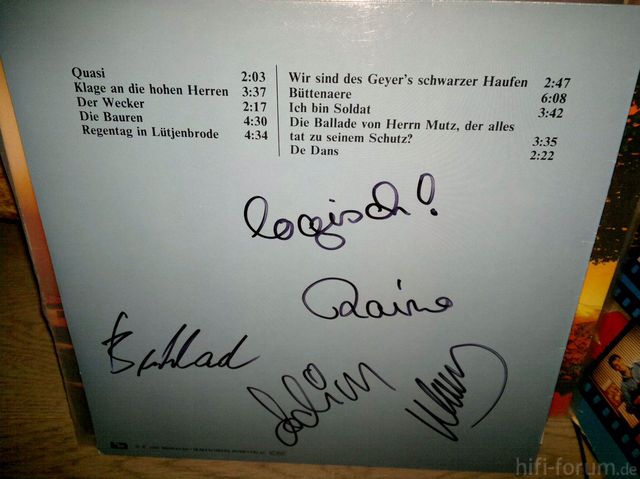 Quasi 2:03
Klage an die hohen Herren 3:37
Der Wecker 2:17
Die Bauren 4:30
Regentag in Lütjenbrode 4:34
Wir sind des Geyer's schwarzer Haufen 2:47
Büttenaere 6:08
Ich bin Soldat 3:42
Die Ballade von Herrn Mutz, der alles
tat zu seinem Schutz? 3:35
De Dans 2:22
logisch!
hifi-forum.de